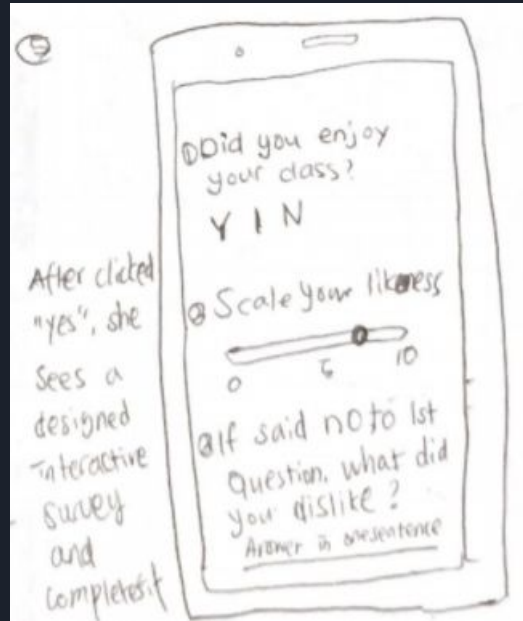 ⑤
After clicked
"yes", she
sees a
designed
interactive
survey
and
completes it
① Did you enjoy
your class?
Y I N
② Scale your likeness
0 5 10
③ If said no to 1st
question, what did
you dislike?
Answer in one sentence